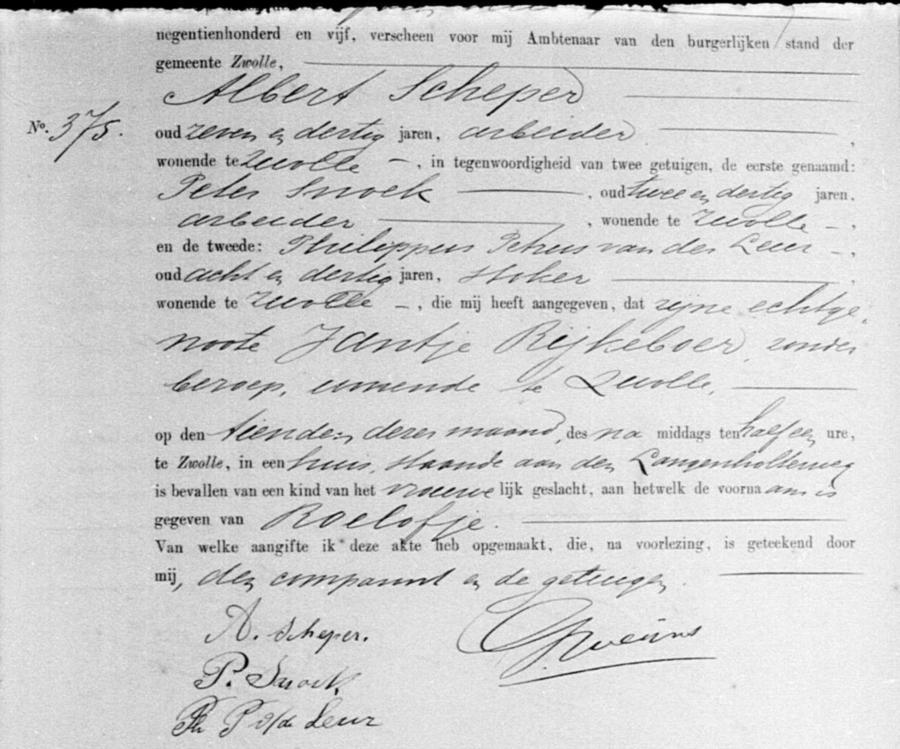 negentienhonderd en vijf, verscheen voor mij Ambtenaar van den burgerlijken stand der
gemeente Zwolle,
Albert Scheper
No. 375.
oud zeven en dertig jaren, arbeider,
wonende te Zwolle –, in tegenwoordigheid van twee getuigen, de eerste genaamd:
Peter Snoek, oud twee en dertig jaren,
arbeider, wonende te Zwolle –,
en de tweede: Philippus Petrus van der Leur –,
oud acht en dertig jaren, stoker
wonende te Zwolle –, die mij heeft aangegeven, dat zijne echtge,
noote Jantje Rijkeboer, zonder
beroep, wonende te Zwolle,
op den tienden dezer maand, des na middags ten half een ure,
te Zwolle, in een huis, staande aan den Langenholterweg
is bevallen van een kind van het vrouwe lijk geslacht, aan hetwelk de voornaam is
gegeven van Roelofje.
Van welke aangifte ik deze akte heb opgemaakt, die, na voorlezing, is geteekend door
mij, den comparant en de getuigen.
A. Scheper.
P. Snoek
Ph P v/d Leur